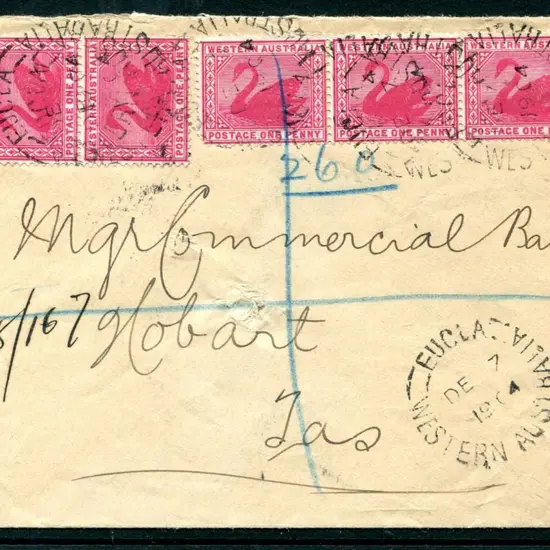 WESTERN AUSTRALIA WESTERN AUSTRALIA WESTERN AUSTRALIA WESTERN AUSTRALIA WESTERN AUSTRALIA
POSTAGE ONE PENNY POSTAGE ONE PENNY POSTAGE ONE PENNY POSTAGE ONE PENNY POSTAGE ONE PENNY
EUCLA
260
Mgr Commercial Ba
/167 Hobart
Tas
EUCLA
DE 7
1904
WESTERN AUSTRALIA